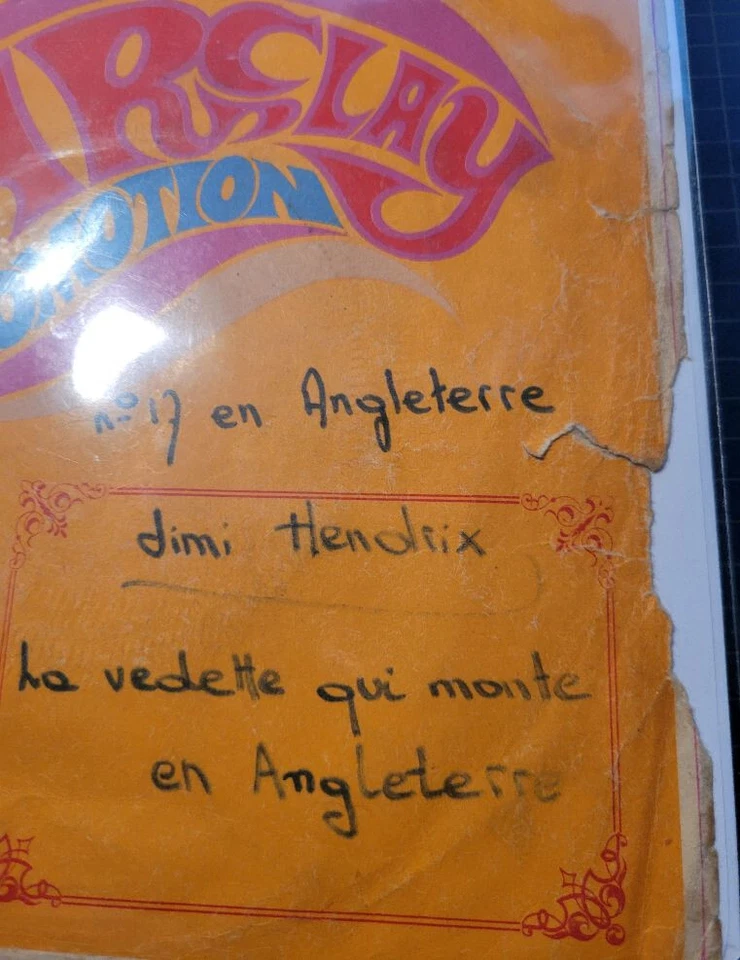 ARCLAY
OMOTION
n° 17 en Angleterre
dimi Hendrix
La vedette qui monte
en Angleterre